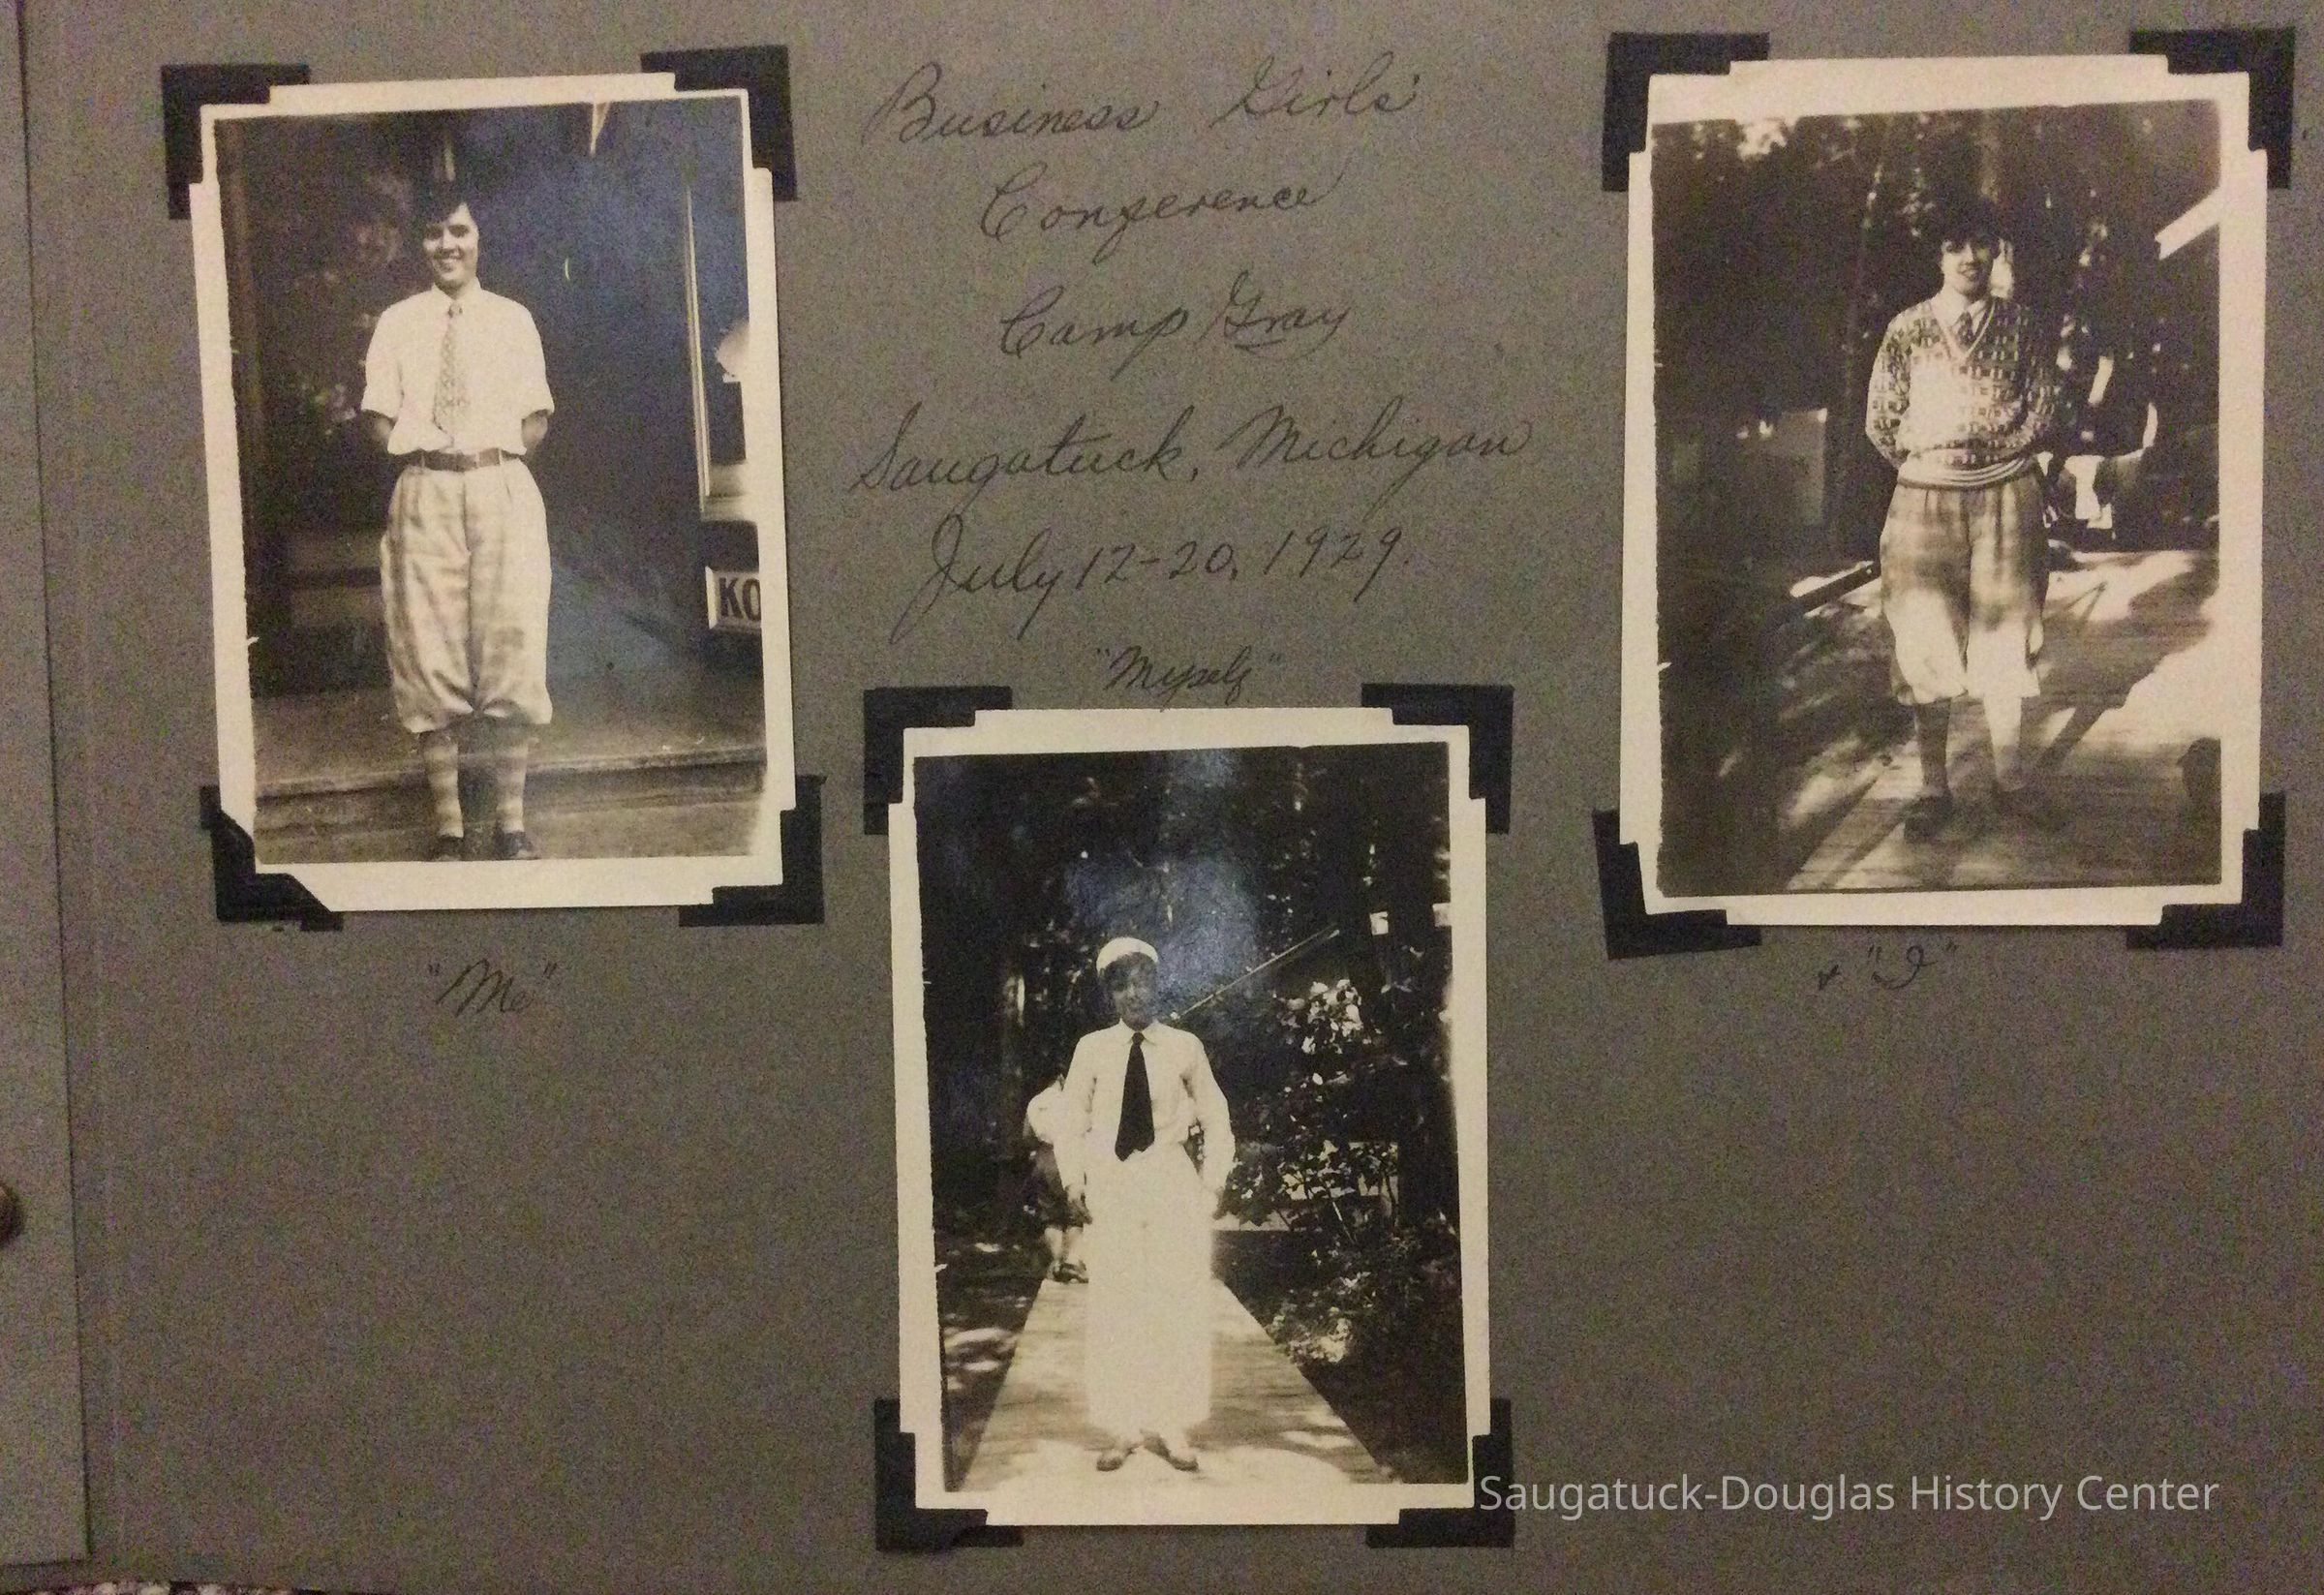 Business Girls'
Conference
Camp Gray
Saugatuck, Michigan
July 12-20, 1929.
"Myself"
KO
"Me"
& "I"
Saugatuck-Douglas History Center